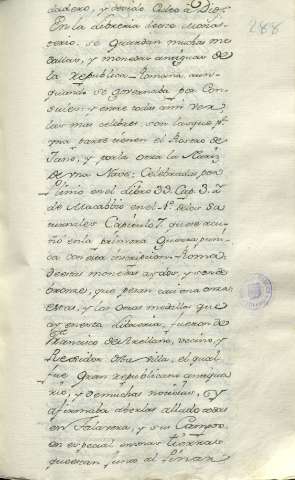 288
dadero, y devido Culto à Dios.
En la libreria deste Monas-
terio, se guardan muchas me
dallas, y monedas antiguas de
la Republica Romana, aun
quando se governaba por Con
sules; y entre todas, â mi ver,
las mas celebres son las que pr
una parte tienen el Rostro de
Jano, y por la otra la
de una Nave: Celebradas por
Plinio en el libro 33. Cap. 3. y
de Macrobio en el 1º de los Sa
turnales Capitulo 7. que se acu
ñó en la primera Guerra puni
ca con esta inscripcion = Roma.
destas monedas ay dos, y son de
bronze, que pesan casi una onza
estas, y las otras medallas que
ay en esta libreria, fueron de
Francisco de Arellano, vecino, y
Regidor desta Villa, el qual
fue Gran republicano antiqua
rio, y de muchas noticias, y
afirmaba aberlas allado todas
en Talavera, y sus Campos,
en especial en unas tierras
que estan junto al Pinar